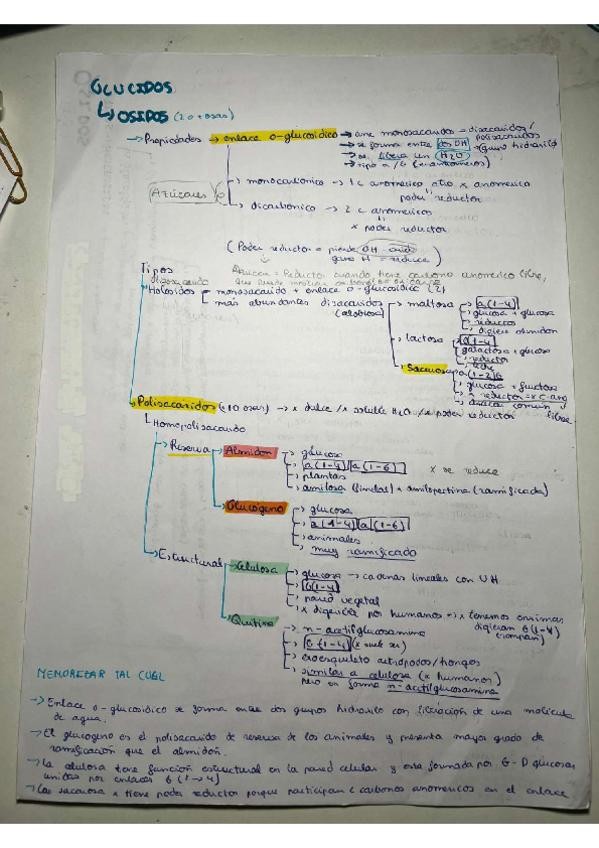 GLUCIDOS
↳ OSIDOS (2 o + osas)
→ Propiedades → enlace o-glucosidico → une monosacaridos → disacaridos/
polisacaridos
→ se forma entre dos OH (grupo hidroxilo)
→ se libera un H2O
→ tipo a/β (enantiomeros)
Azúcares
→ monocarbonico → 1 c anomerico otro x anomerico
poder reductor
→ dicarbonico → 2 c anomericos
x poder reductor
(Poder reductor = pierde OH
gana H = reduce)
Azucar = Reductor cuando tiene carbono anomerico libre,
que puede
Tipos
disacarido
Holosidos = monosacarido + enlace o-glucosidico (2)
mas abundantes disacaridos
→ maltosa → a(1-4)
glucosa + glucosa
reductor
almidon
→ lactosa → β(1-4)
galactosa + glucosa
reductor
leche
→ Sacarosa → (1-2)β
glucosa + fructosa
x reductor = x c. ang
libre
azucar comun
→ Polisacaridos (+10 osas) → x dulce / x soluble H2O / x poder reductor
↳ Homopolisacarido
→ Reserva → Almidon → glucosa
a(1-4) a(1-6) x se reduce
plantas
amilosa (lineal) + amilopectina (ramificada)
→ Glucogeno → glucosa
a(1-4) a(1-6)
animales
muy ramificado
→ Estructural → Celulosa → glucosa → cadenas lineales con OH
β(1-4)
pared vegetal
x digerida por humanos → x tenemos enzimas
digieran β(1-4)
(rompan)
→ Quitina → n-acetilglucosamina
β(1-4)
exoesqueleto artropodos/hongos
similar a celulosa (x humanos)
pero en forma n-acetilglucosamina
MEMORIZAR TAL CUAL
→ Enlace o-glucosidico se forma entre dos grupos hidroxilo con liberacion de una molecula
de agua.
→ El glucogeno es el polisacarido de reserva de los animales y presenta mayor grado de
ramificación que el almidón.
→ La celulosa tiene función estructural en la pared celular y esta formada por β-D glucosas
unidas por enlaces β (1→4)
→ La sacarosa x tiene poder reductor porque participan 2 carbonos anomericos en el enlace